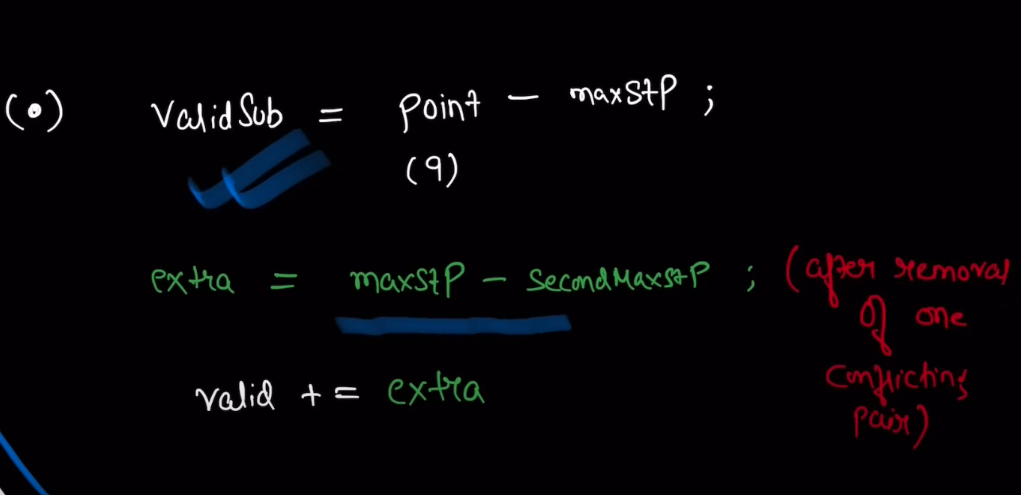 (•) ValidSub = Point - maxStP ;
(9)
extra = maxStP - SecondMaxStP ; (after removal
of one
Conflicting
pair)
valid += extra